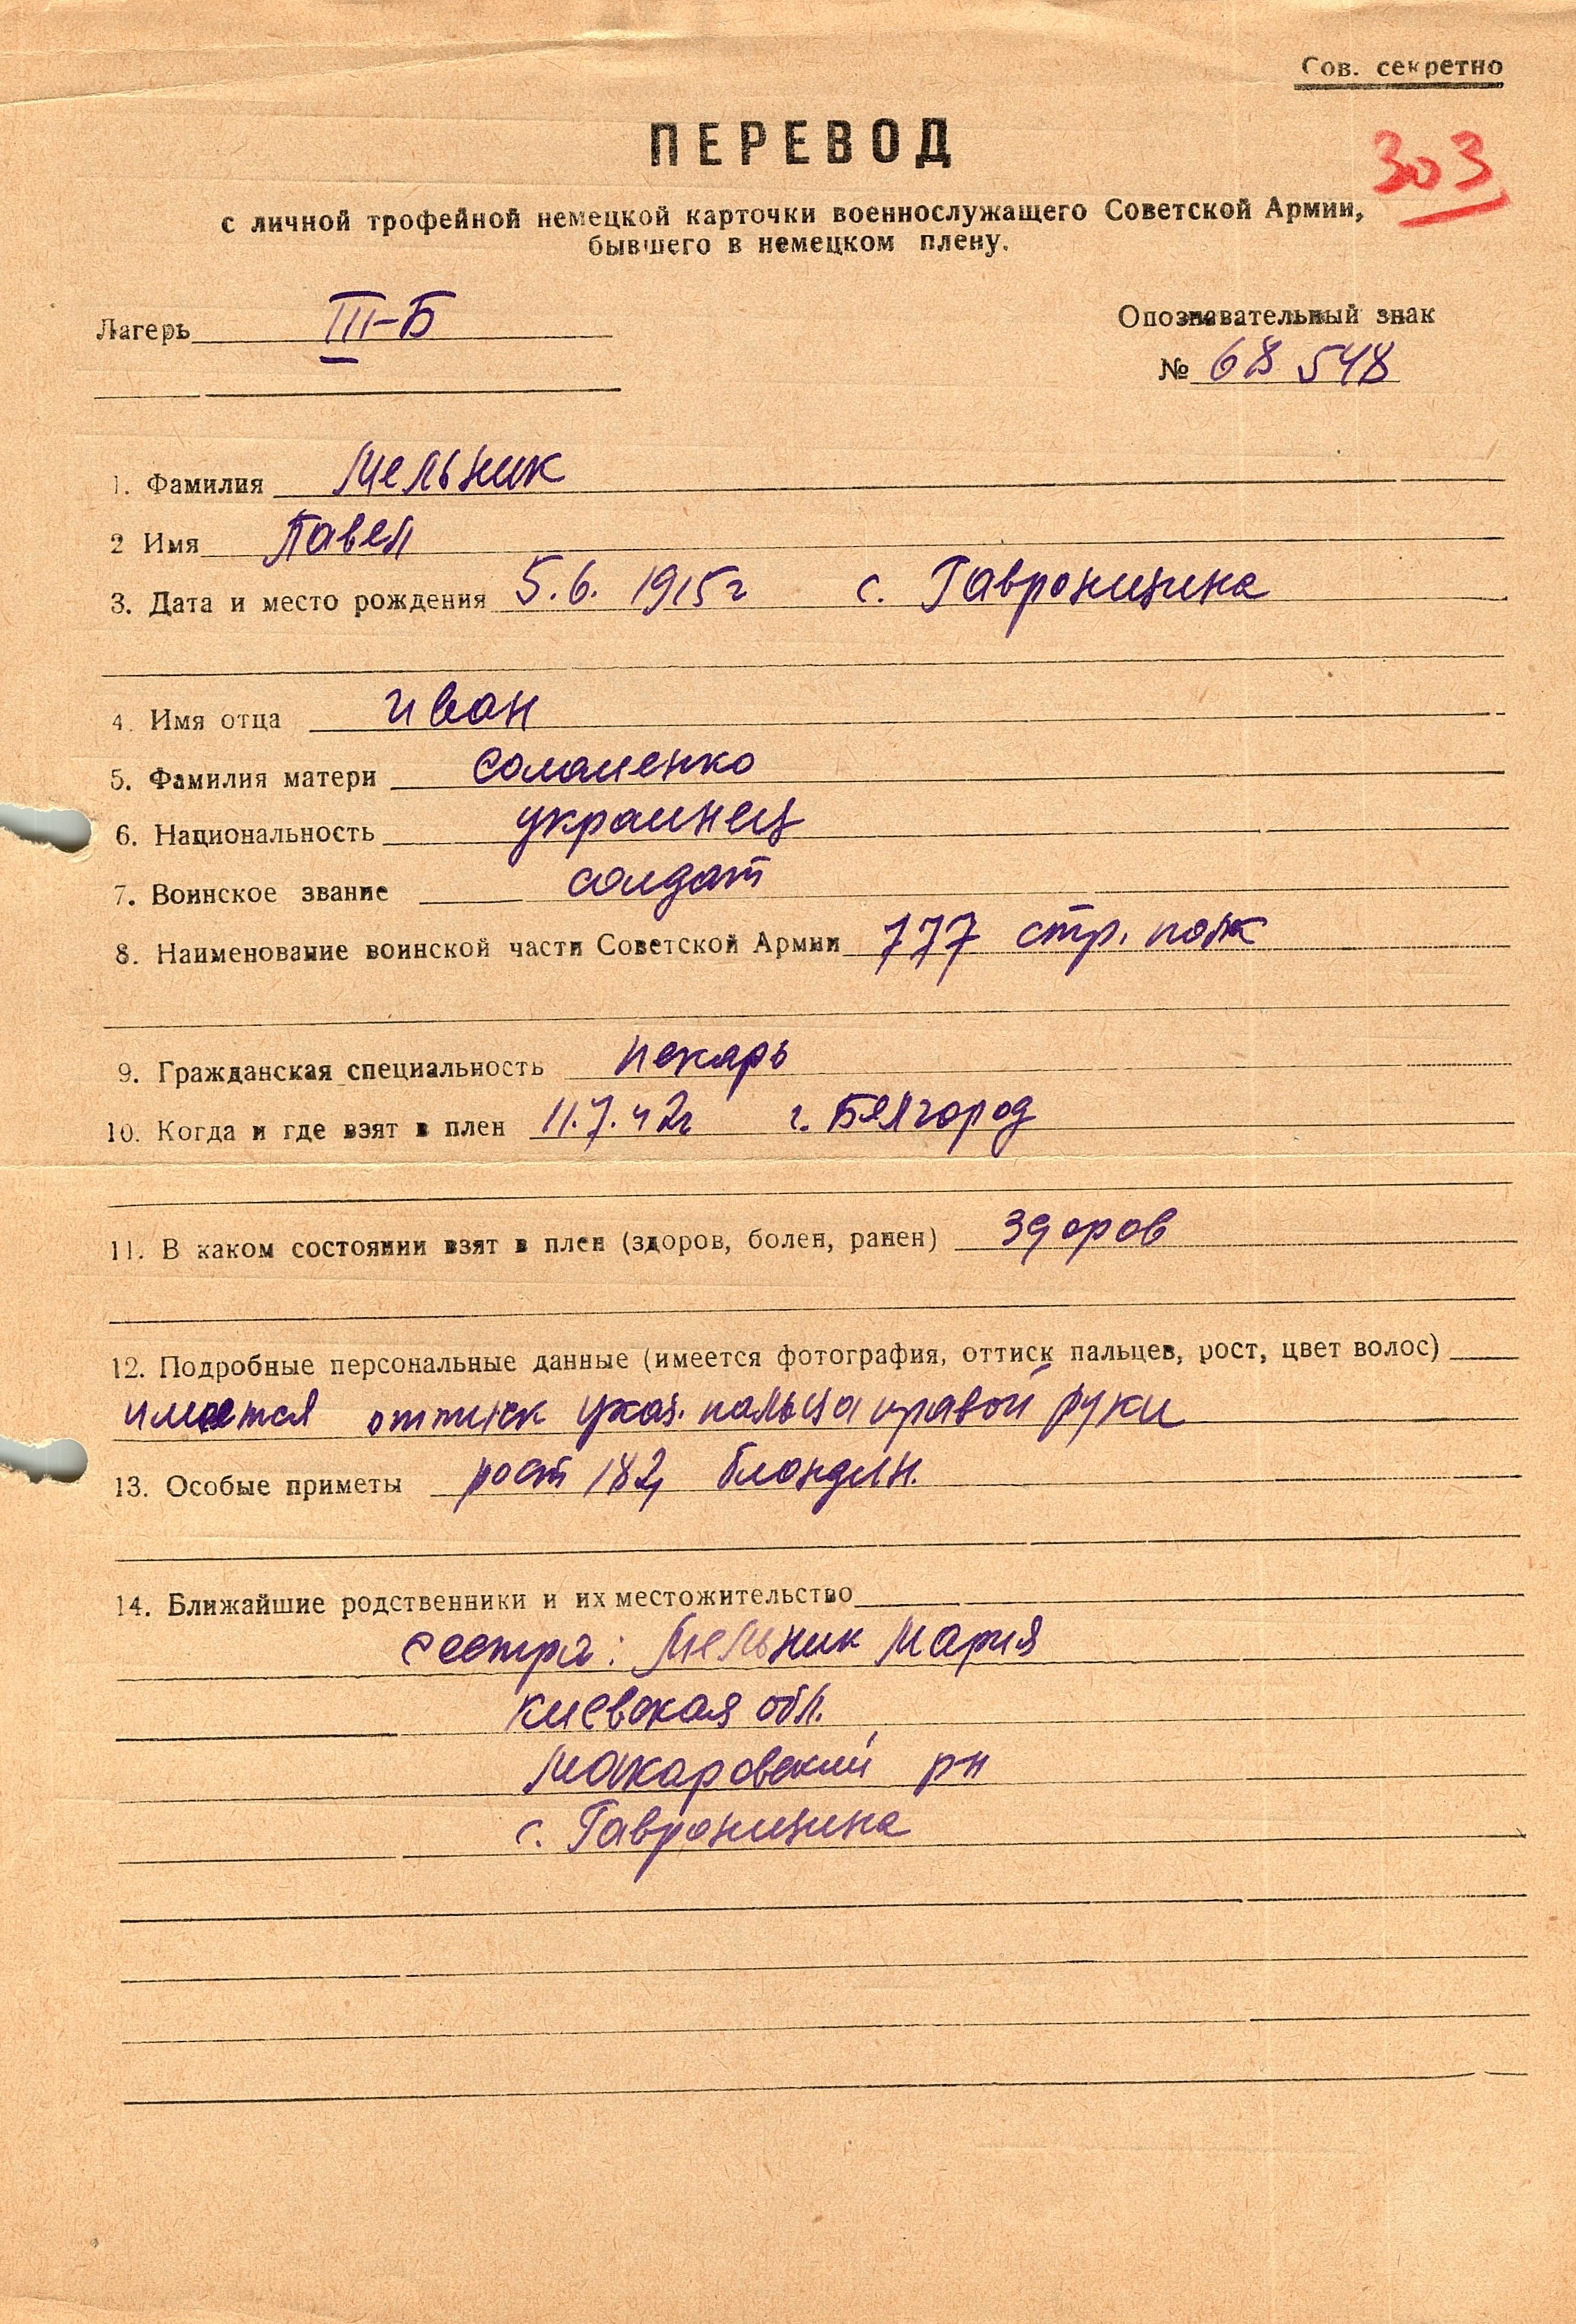 Сов. секретно
ПЕРЕВОД
303
с личной трофейной немецкой карточки военнослужащего Советской Армии,
бывшего в немецком плену.
Лагерь III-Б
Опознавательный знак
№ 68 548
1. Фамилия Мельник
2 Имя Павел
3. Дата и место рождения 5.6. 1915г с. Гавронщина
4. Имя отца Иван
5. Фамилия матери Соломенко
6. Национальность украинец
7. Воинское звание солдат
8. Наименование воинской части Советской Армии 777 стр. полк
9. Гражданская специальность пекарь
10. Когда и где взят в плен 11.7.42г г. Белгород
11. В каком состоянии взят в плен (здоров, болен, ранен) здоров
12. Подробные персональные данные (имеется фотография, оттиск пальцев, рост, цвет волос)
имеется оттиск указ. пальца правой руки
13. Особые приметы рост 182, блондин.
14. Ближайшие родственники и их местожительство
сестра: Мельник Мария
Киевская обл.
Макаровский рн
с. Гавронщина